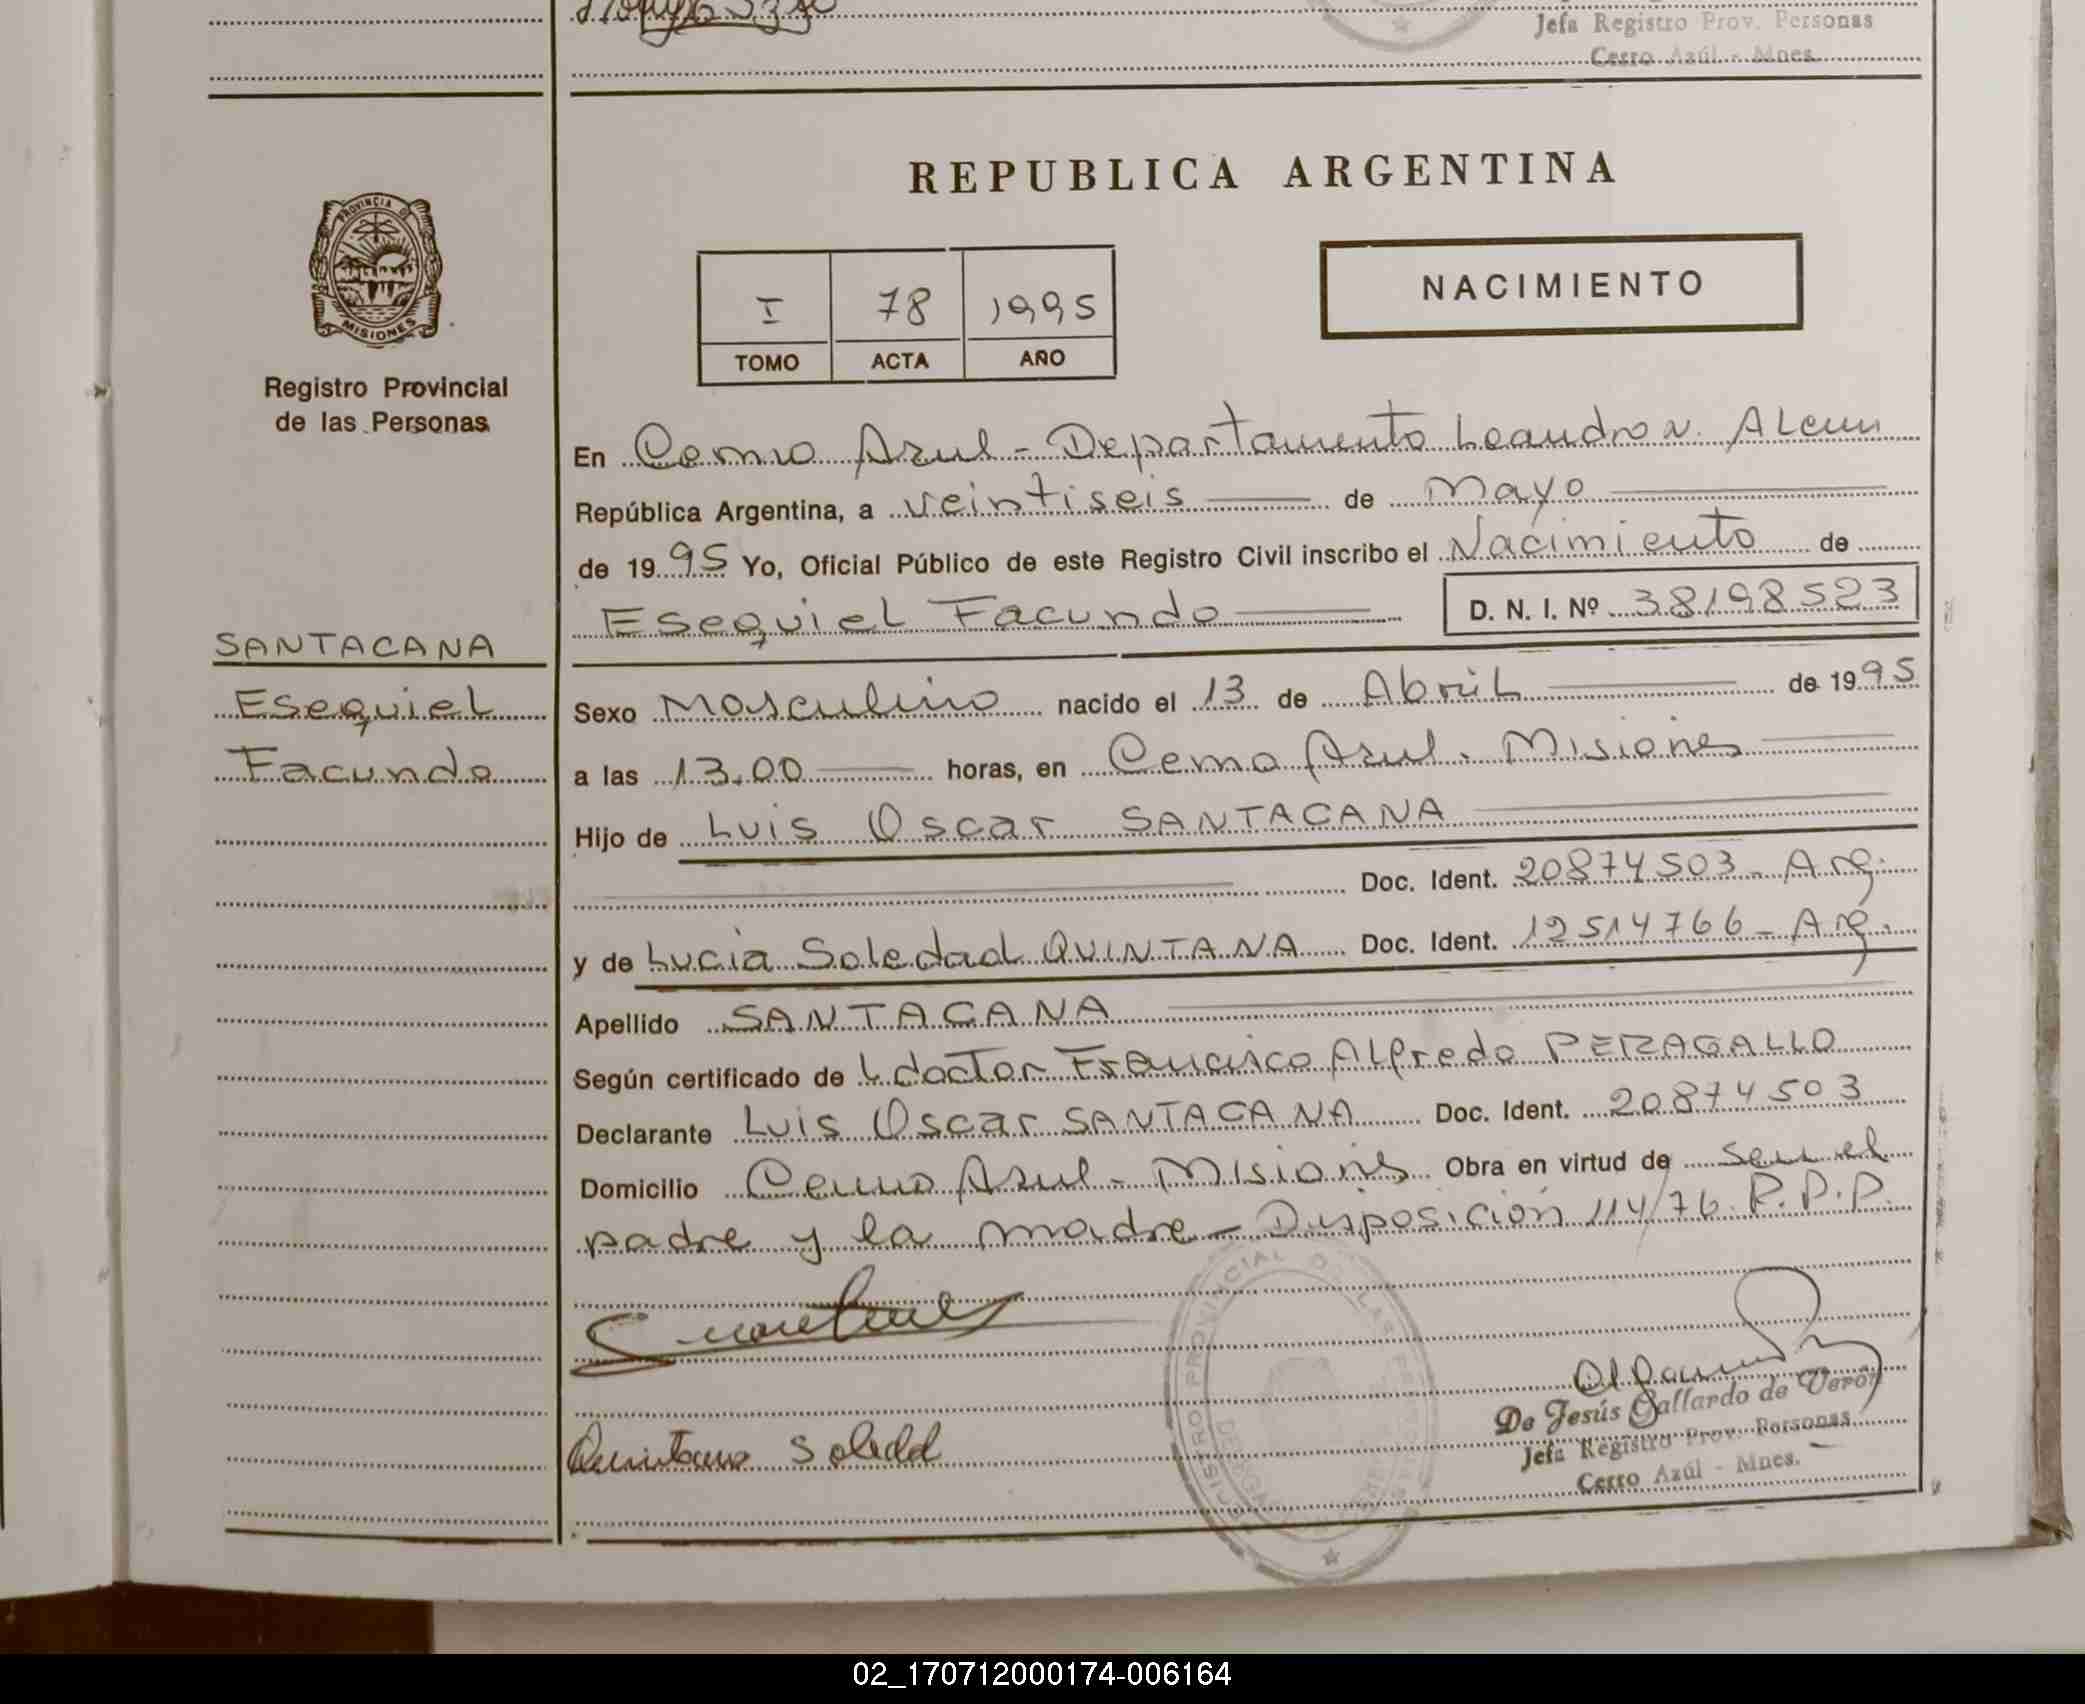 Jefa Registro Prov. Personas
Cerro Azúl - Mnes.
REPUBLICA ARGENTINA
PROVINCIA DE
MISIONES
Registro Provincial
de las Personas
I 78 1995
TOMO ACTA AÑO
NACIMIENTO
En Cerro Azul - Departamento Leandro N. Alem
República Argentina, a veintiseis de Mayo
de 1995 Yo, Oficial Público de este Registro Civil inscribo el Nacimiento de
Esequiel Facundo D. N. I. Nº 38198523
SANTACANA
Esequiel
Facundo
Sexo Masculino nacido el 13 de Abril de 1995
a las 13.00 horas, en Cerro Azul - Misiones
Hijo de Luis Oscar SANTACANA
Doc. Ident. 20874503 - Arg.
y de Lucia Soledad QUINTANA Doc. Ident. 12514766 - Arg.
Apellido SANTACANA
Según certificado de l doctor Francisco Alfredo PERAGALLO
Declarante Luis Oscar SANTACANA Doc. Ident. 20874503
Domicilio Cerro Azul - Misiones Obra en virtud de ser el
padre y la madre - Disposición 114/76.
REGISTRO PROVINCIAL DE LAS PERSONAS
Quintana Soledad
De Jesús Gallardo de Verón
Jefa Registro Prov. Personas
Cerro Azúl - Mnes.
02_170712000174-006164